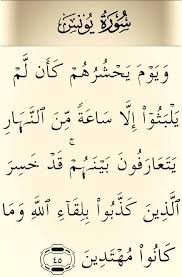 سُورَةُ يُونُسَ
وَيَوْمَ يَحْشُرُهُمْ كَأَن لَّمْ
يَلْبَثُوٓا۟ إِلَّا سَاعَةً مِّنَ ٱلنَّهَارِ
يَتَعَارَفُونَ بَيْنَهُمْ ۚ قَدْ خَسِرَ
ٱلَّذِينَ كَذَّبُوا۟ بِلِقَآءِ ٱللَّهِ وَمَا
كَانُوا۟ مُهْتَدِينَ ٤٥